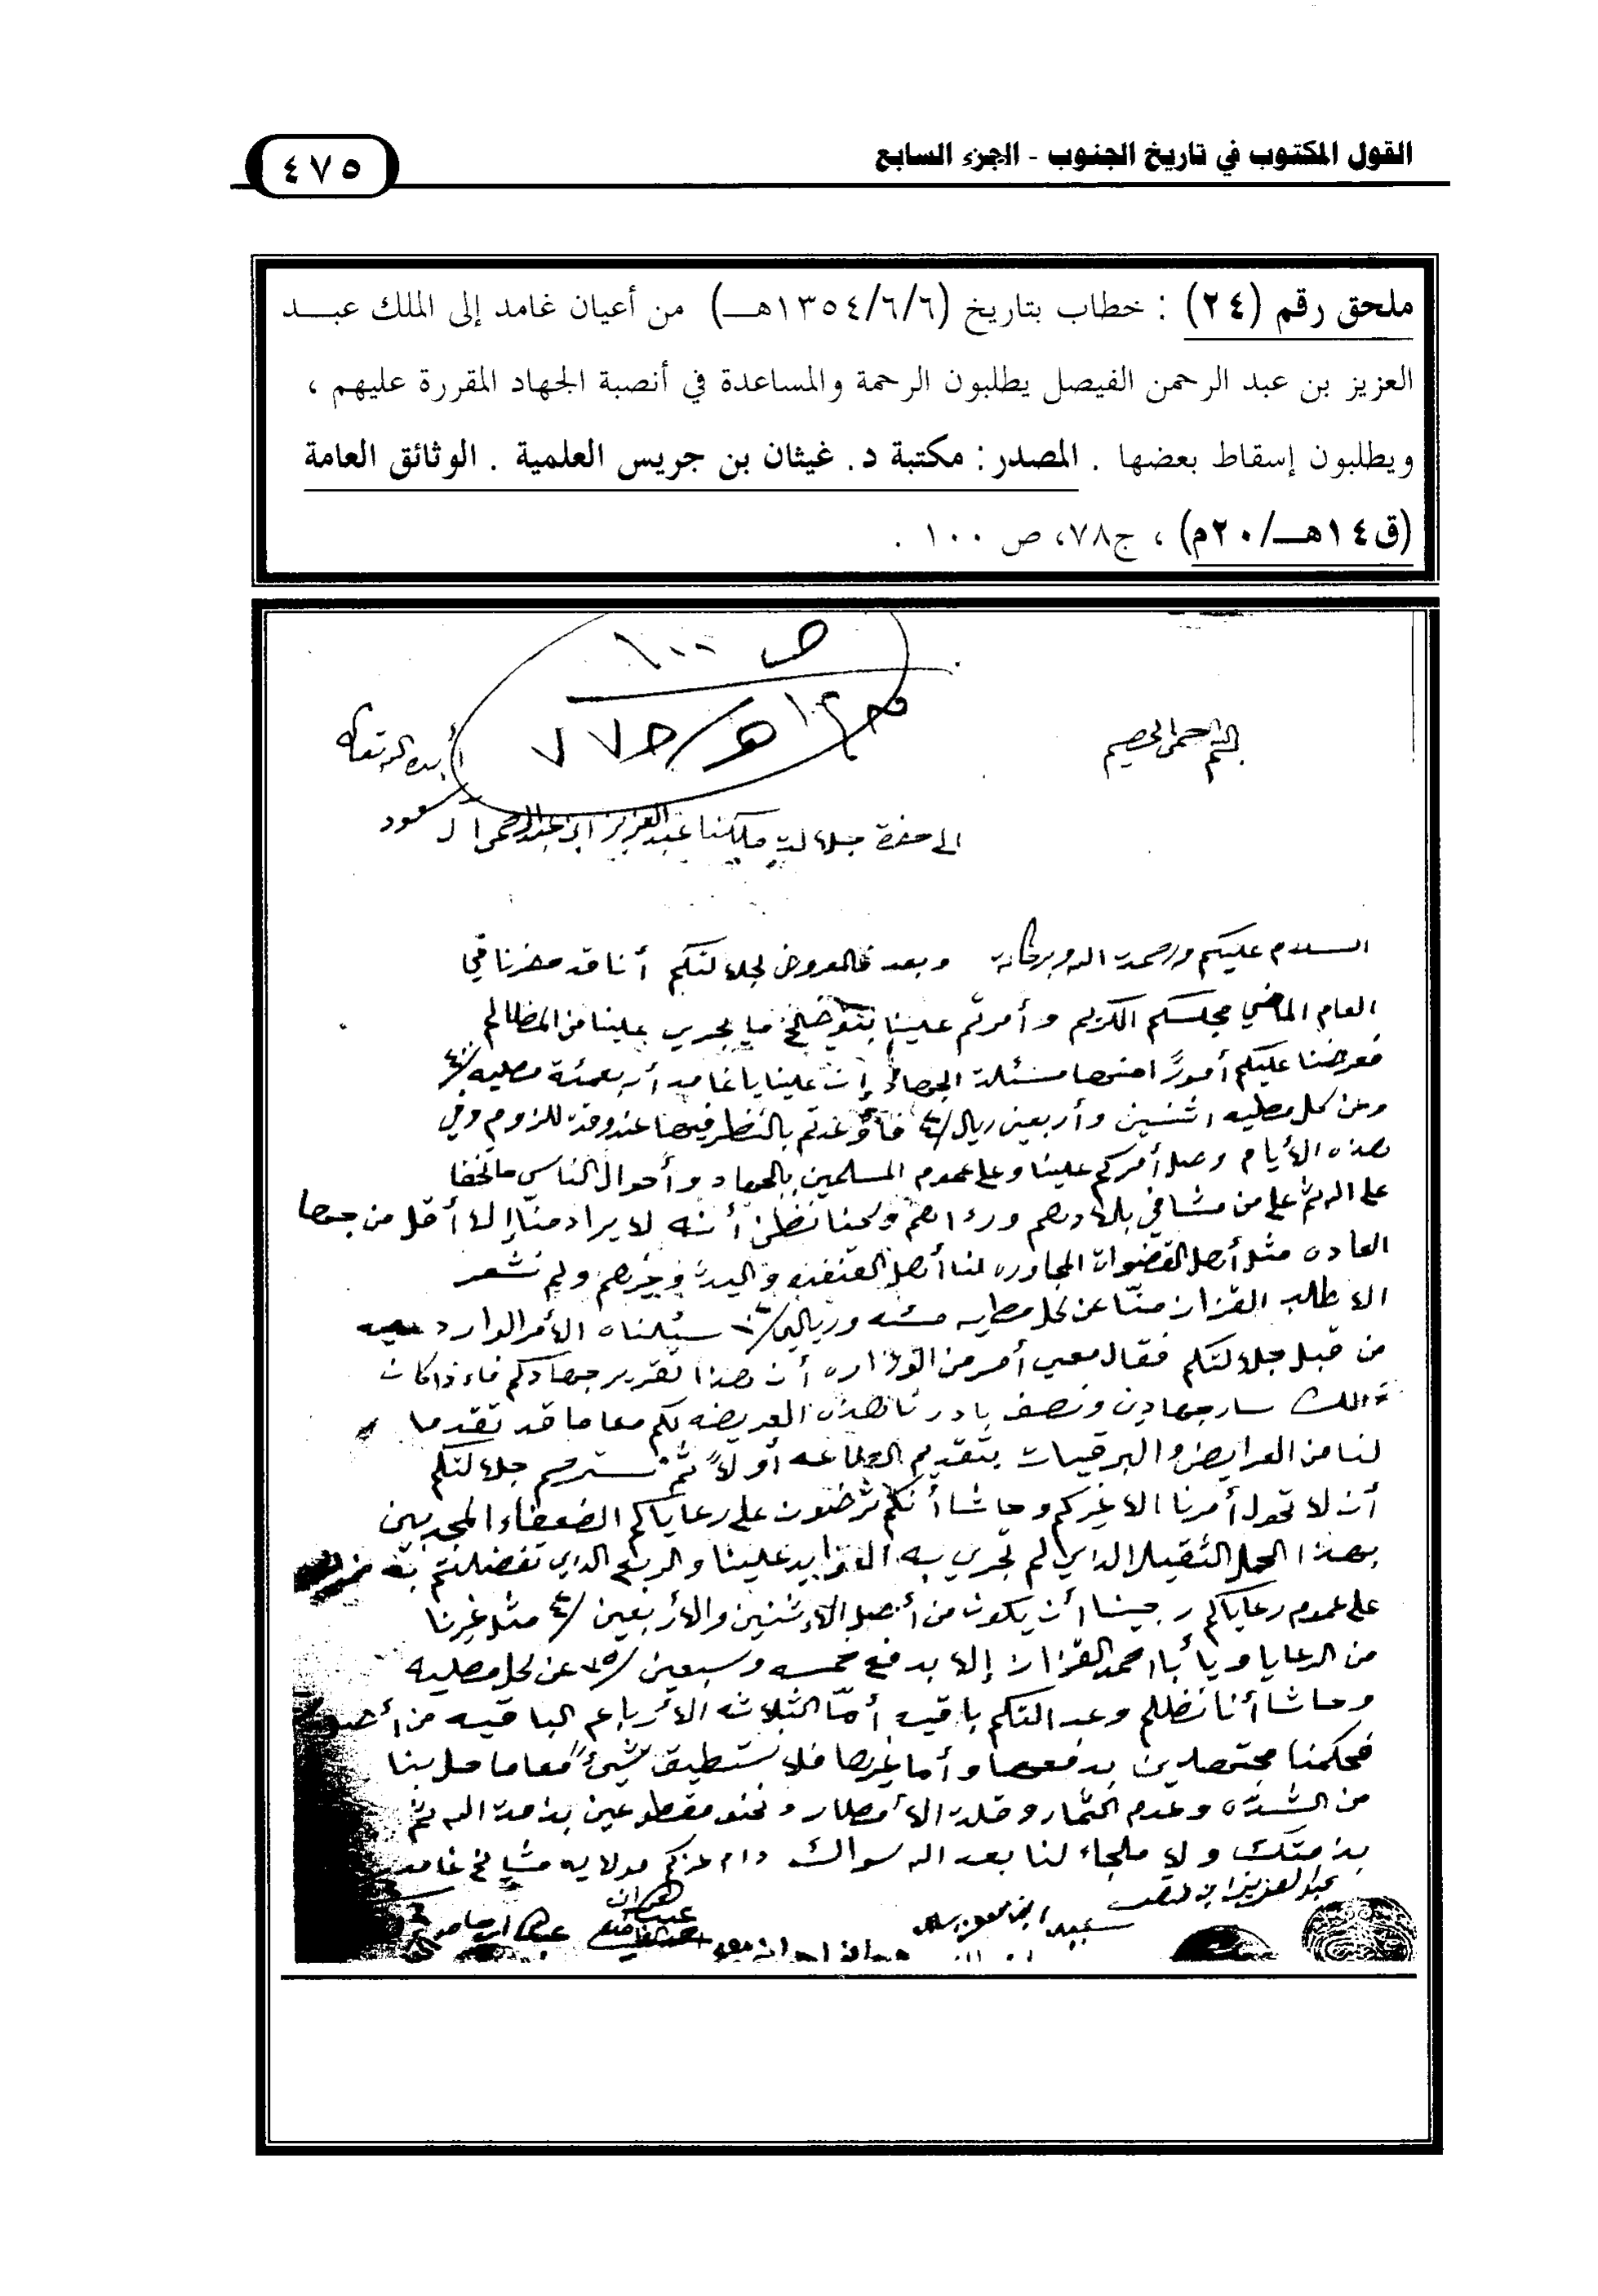 القول المكتوب في تاريخ الجنوب - الجزء السابع
٤٧٥
ملحق رقم (٢٤) : خطاب بتاريخ (١٣٥٤/٦/٦هـ) من أعيان غامد إلى الملك عبد
العزيز بن عبد الرحمن الفيصل يطلبون الرحمة والمساعدة في أنصبة الجهاد المقررة عليهم ،
ويطلبون إسقاط بعضها . المصدر : مكتبة د. غيثان بن جريس العلمية . الوثائق العامة
(ق١٤هـ/٢٠م) ، ج٧٨، ص ١٠٠ .
ص ١٠٠
بسم الله الرحمن الرحيم
أيده الله تعالى
الى حضرة جلالة ملكنا عبد العزيز ابن عبد الرحمن ال سعود
السلام عليكم ورحمة الله وبركاته وبعد فالمعروض لجلالتكم أننا قد حضرنا في
العام الماضي مجلسكم الكريم وأمرتم علينا بتوضيح ما يجري علينا من المظالم
فعرضنا عليكم أموراً اهمها مسئلة الجهاد إن علينا يا غامد أربعمئة مطيه /٤٠٠
وعن كل مطيه اثنين وأربعين ريال /٤٢ فأوعدتم بالنظر فيها عند وقت اللزوم وفي
هذه الأيام وصل أمركم علينا وعلى عموم المسلمين بالجهاد وأحوال الناس ما تخفا
على الله ثم على من مشا في بلادهم ورءاهم ونحنا نظن أنه لا يراد منا إلا أقل من جهها
العاده مثل أهل القضوات المجاوره لنا أهل القنفذه والليث وغيرهم ولم نشعر
الا يطلب القزاز منّا عن كل مطيه مئه وريالين /١٠٢ سئلناه الأمر الوارد عليه
من قبل جلالتكم فقال معي أمر من الوزاره أن هذا تقرير جهادكم فاءذا كان
كذالك سار جهادين ونصف بادرنا بهذه العريضه لكم معا ما قد تقدم
لنا من العرايض والبرقيات بتقديم الطاعه أولاً ثم نسترحم جلالتكم
أن لا تحول أمرنا الا غيركم وحاشا أنكم ترضون على رعاياكم الضعفاء المجدبين
بهذا الحمل الثقيل الذي لم تجري به العوايد علينا والربع الذي تفضلتم به
على عموم رعاياكم رجينا أن يكون من أصل الاءثنين والأربعين /٤٢ مثل غيرنا
من الرعايا ويأبا احمد القزاز إلا بدفع خمسه وسبعين /٧٥ عن كل مطيه
وحاشا أننا نظلم وعدالتكم باقيه أمّا الثلاثه الأرباع الباقيه من أصل
فحكمنا مجتهدين بدفعها وأما غيرها فلا نستطيق شيئ معا ما حل بنا
من الشدّه وعدم الثمار وقلة الأمطار ونحنو مقطوعين بذمة الله ثم
بذمتك ولا ملجاء لنا بعد الله سواك دام عزكم مولاي مشايخ غامد
عبد العزيز ابن